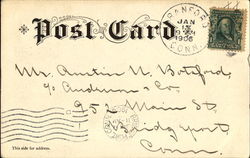 Post Card
BRANFORD
JAN
1906
CONN.
Mr. Austin N. Botsford,
c/o Anderson & Co.
952 Main St.
Bridgeport
Conn.
This side for address.